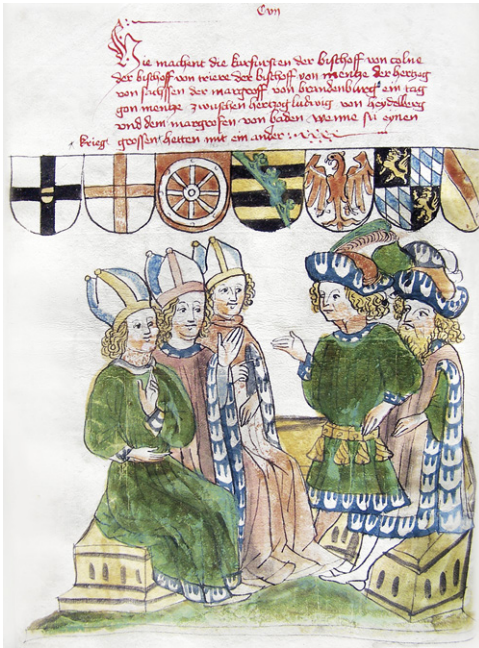 Cvii
Hie machent die kurfürsten der bisthoff von colne
der bisthoff von triere der bisthoff von mentze der hertzog
von sachssen der margroff von brandenburg ein tag
gon mentze zwüschen hertzog ludwig von heydelberg
und dem margrofen von baden wenne sü einen
grossen krieg hetten mit ein ander